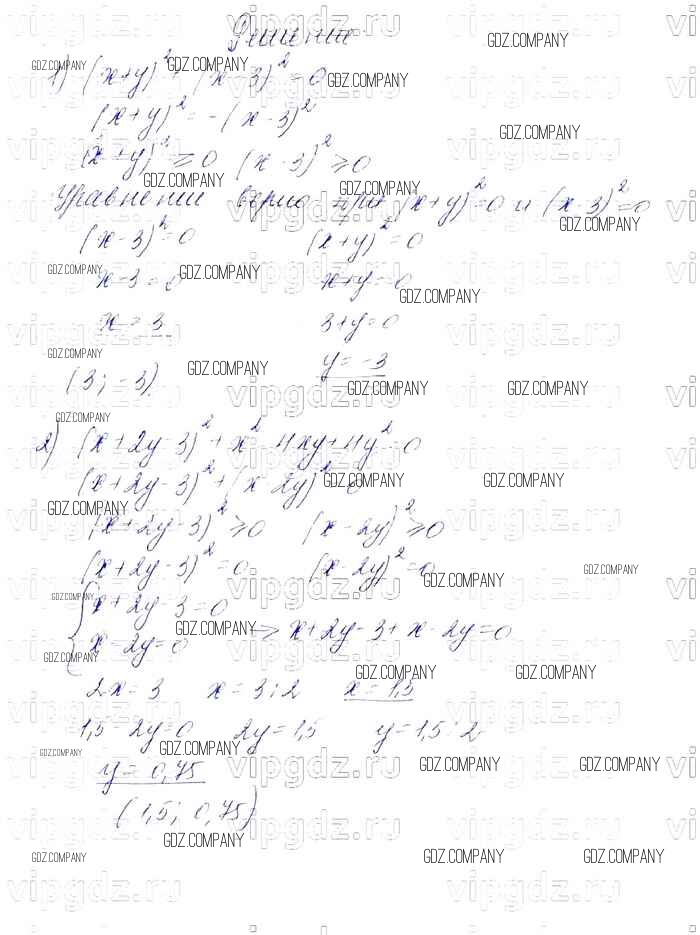 Решение
1) (x+y)² + (x-3)² = 0
(x+y)² = -(x-3)²
(x+y)² ⩾ 0 (x-3)² ⩾ 0
Уравнении верно при (x+y)²=0 и (x-3)²=0
(x-3)² = 0 (x+y)² = 0
x-3 = 0 x+y=0
x = 3 3+y=0
y = -3
(3; -3)
2) (x+2y-3)² + x² - 4xy + 4y² = 0
(x+2y-3)² + (x-2y)² = 0
(x+2y-3)² ⩾ 0 (x-2y)² ⩾ 0
(x+2y-3)² = 0 (x-2y)² = 0
x+2y-3=0
x-2y=0 => x+2y-3+x-2y=0
2x=3 x=3:2 x=1,5
1,5-2y=0 2y=1,5 y=1,5:2
y=0,75
(1,5; 0,75)
vipgdz.ru
GDZ.COMPANY